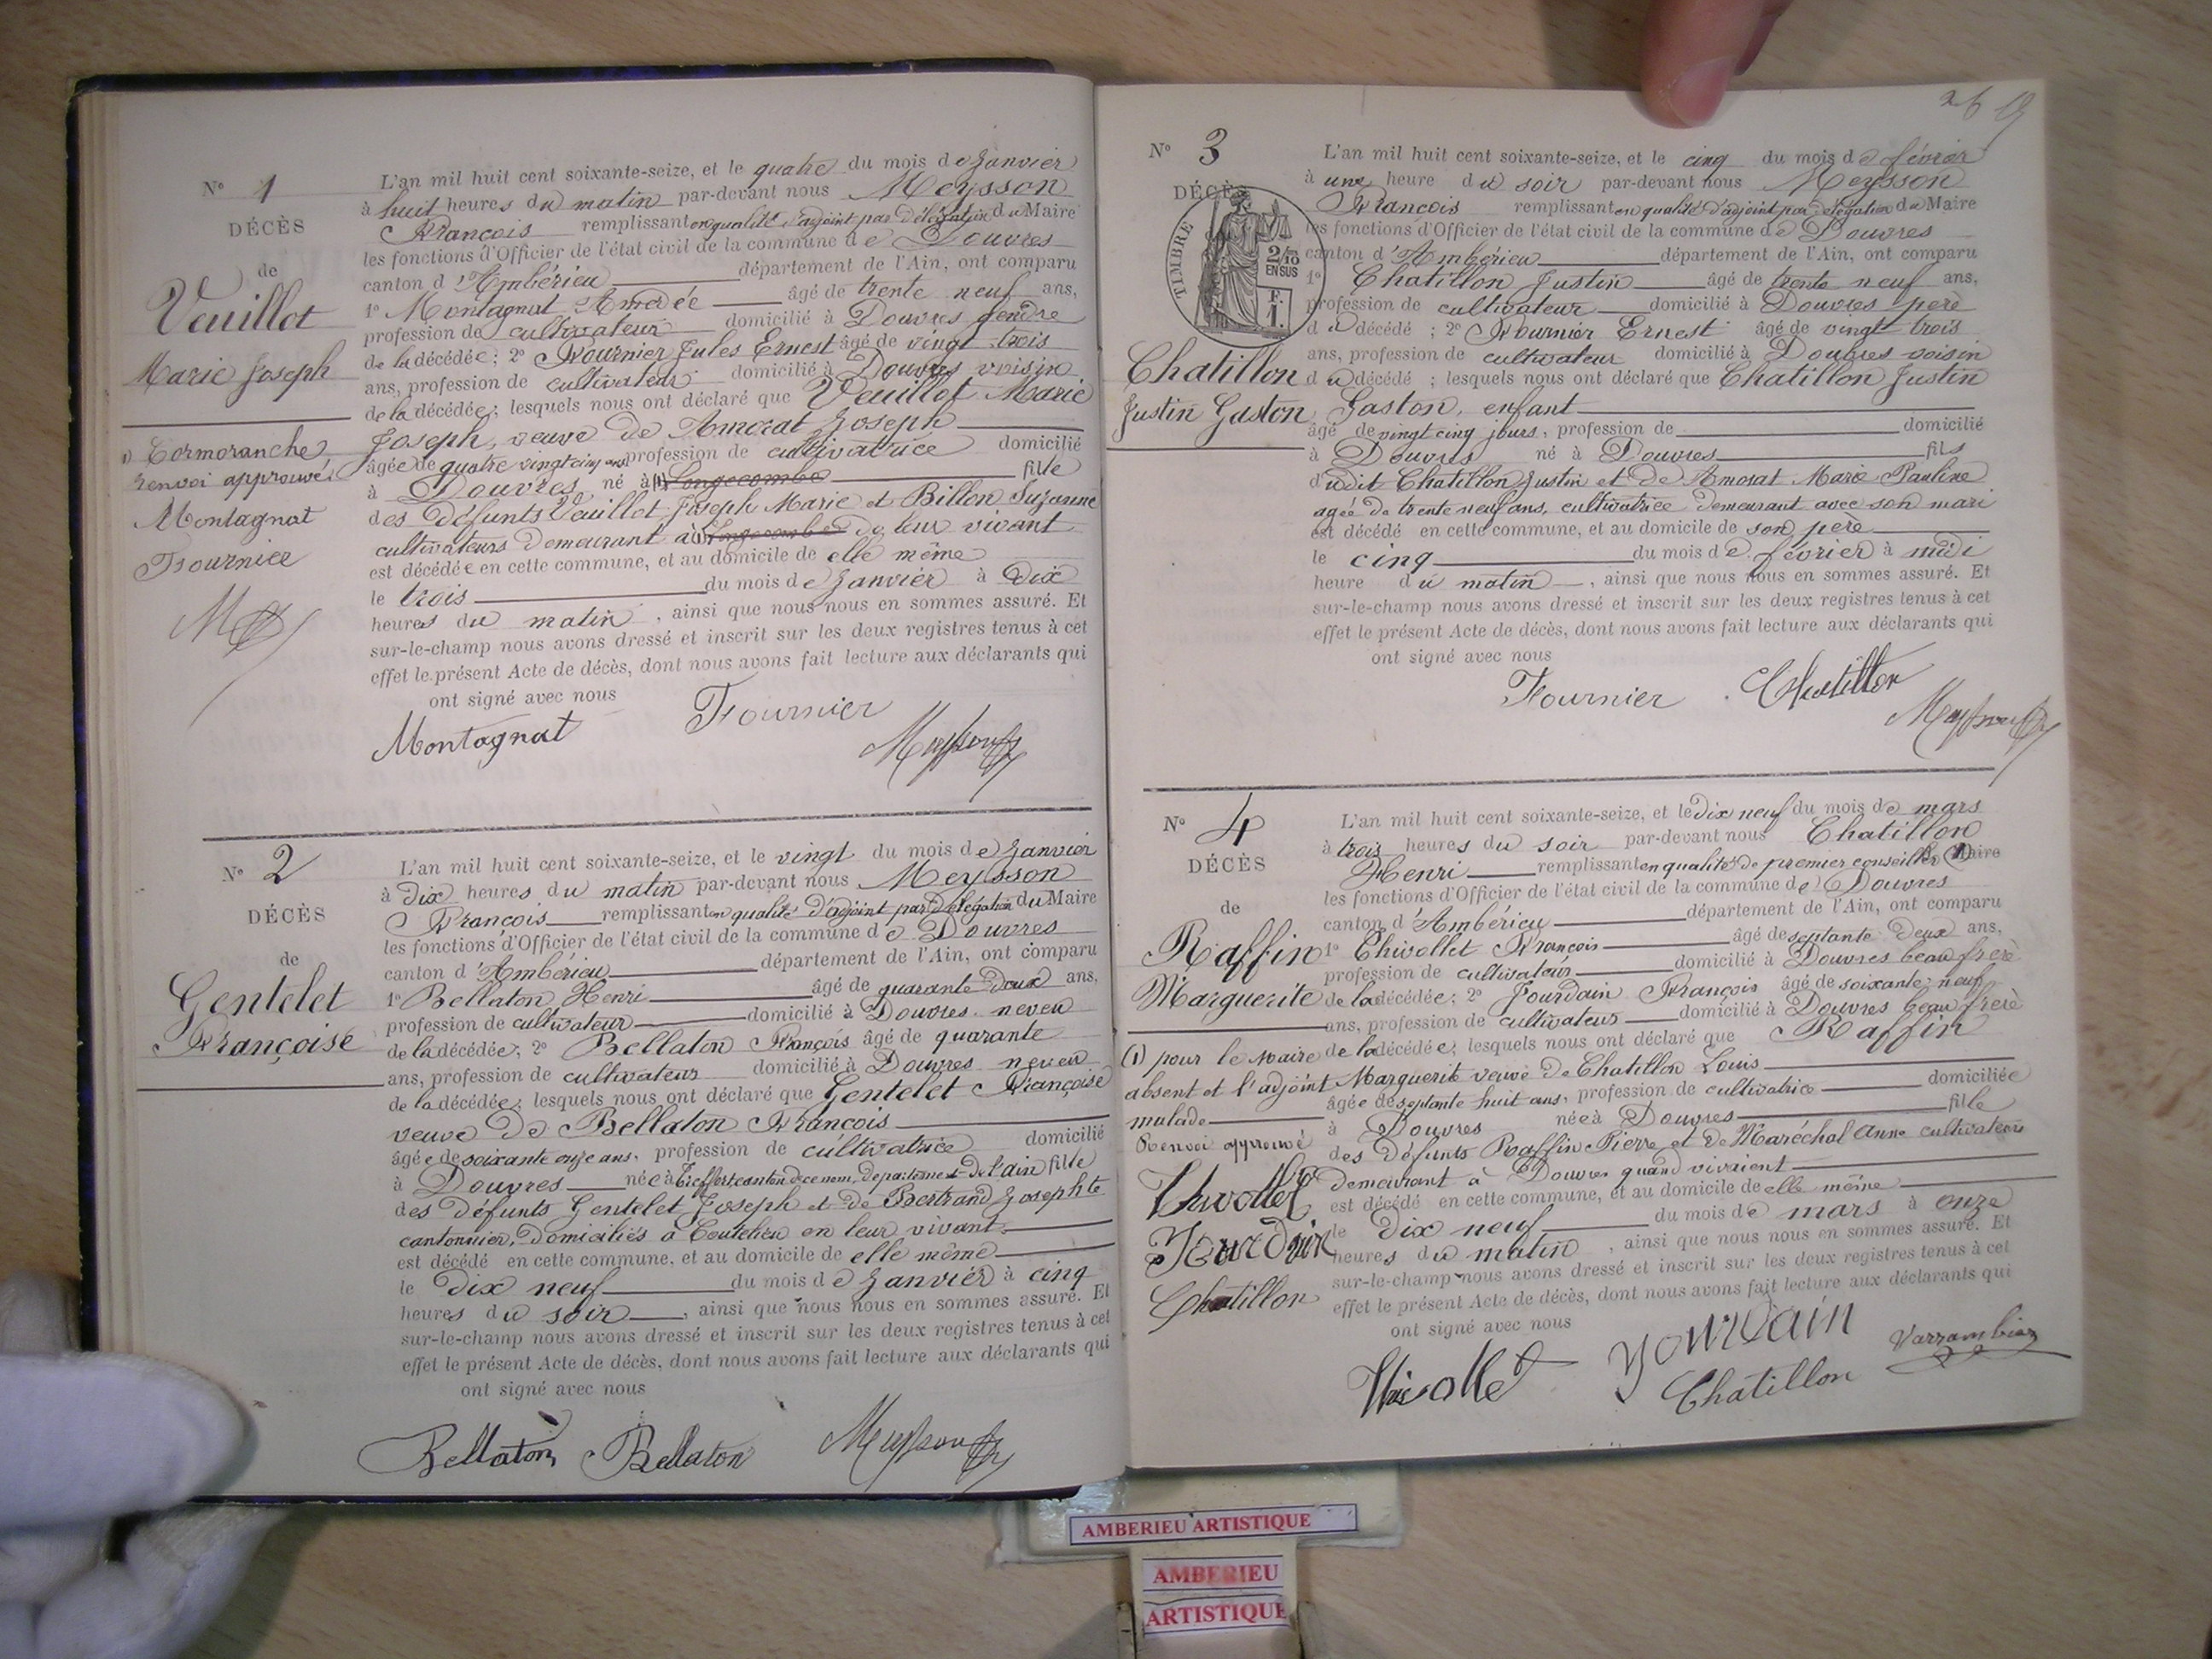 N° 1
DÉCÈS
de
Veuillot
Marie Joseph
1) Cormoranche,
renvoi approuvé.
Montagnat
Fournier
L'an mil huit cent soixante-seize, et le quatre du mois de Janvier
à huit heures du matin par-devant nous Meysson
François remplissant en qualité d'adjoint par délégation du Maire
les fonctions d'Officier de l'état civil de la commune de Douvres
canton d'Ambérieu département de l'Ain, ont comparu
1° Montagnat Amédée âgé de trente neuf ans,
profession de cultivateur domicilié à Douvres gendre
de la décédée; 2° Fournier Jules Ernest âgé de vingt trois
ans, profession de cultivateur domicilié à Douvres voisin
de la décédée; lesquels nous ont déclaré que Veuillot Marie
Joseph, veuve de Amorat Joseph
âgée de quatre vingt cinq ans profession de cultivatrice domicilié
à Douvres né à (1) Longecombe fille
des défunts Veuillot Joseph Marie et Billon Suzanne
cultivateurs demeurant à (1) Longecombe de leur vivant
est décédée en cette commune, et au domicile de elle même
le trois du mois de Janvier à dix
heures du matin, ainsi que nous nous en sommes assuré. Et
sur-le-champ nous avons dressé et inscrit sur les deux registres tenus à cet
effet le présent Acte de décès, dont nous avons fait lecture aux déclarants qui
ont signé avec nous
Montagnat Fournier Meysson
N° 2
DÉCÈS
de
Gentelet
Françoise
L'an mil huit cent soixante-seize, et le vingt du mois de Janvier
à dix heures du matin par-devant nous Meysson
François remplissant en qualité d'adjoint par délégation du Maire
les fonctions d'Officier de l'état civil de la commune de Douvres
canton d'Ambérieu département de l'Ain, ont comparu
1° Bellaton Henri âgé de quarante deux ans,
profession de cultivateur domicilié à Douvres neveu
de la décédée; 2° Bellaton François âgé de quarante
ans, profession de cultivateur domicilié à Douvres neveu
de la décédée; lesquels nous ont déclaré que Gentelet Françoise
veuve de Bellaton François
âgée de soixante onze ans, profession de cultivatrice domicilié
à Douvres née à Treffort, canton de ce nom, département de l'ain fille
des défunts Gentelet Joseph et de Bertrand Josephte
cantonnier, domiciliés à en leur vivant
est décédé en cette commune, et au domicile de elle même
le dix neuf du mois de Janvier à cinq
heures du soir, ainsi que nous nous en sommes assuré. Et
sur-le-champ nous avons dressé et inscrit sur les deux registres tenus à cet
effet le présent Acte de décès, dont nous avons fait lecture aux déclarants qui
ont signé avec nous
Bellaton Bellaton Meysson
26 19
N° 3
DÉCÈS
TIMBRE
2/10
EN SUS
F.
1.
Chatillon
Justin Gaston
L'an mil huit cent soixante-seize, et le cinq du mois de février
à une heure du soir par-devant nous Meysson
François remplissant en qualité d'adjoint par délégation du Maire
les fonctions d'Officier de l'état civil de la commune de Douvres
canton d'Ambérieu département de l'Ain, ont comparu
1° Chatillon Justin âgé de trente neuf ans,
profession de cultivateur domicilié à Douvres père
du décédé; 2° Fournier Ernest âgé de vingt trois
ans, profession de cultivateur domicilié à Douvres voisin
du décédé; lesquels nous ont déclaré que Chatillon Justin
Gaston, enfant
âgé de vingt cinq jours, profession de domicilié
à Douvres né à Douvres fils
dudit Chatillon Justin et de Amorat Marie Pauline
agée de trente neuf ans, cultivatrice demeurant avec son mari
est décédé en cette commune, et au domicile de son père
le cinq du mois de février à midi
heure du matin, ainsi que nous nous en sommes assuré. Et
sur-le-champ nous avons dressé et inscrit sur les deux registres tenus à cet
effet le présent Acte de décès, dont nous avons fait lecture aux déclarants qui
ont signé avec nous
Fournier Chatillon Meysson
N° 4
DÉCÈS
de
Raffin
Marguerite
(1) pour le Maire
absent et l'adjoint
malade
Renvoi approuvé
Chivollet
Jourdain
Chatillon
L'an mil huit cent soixante-seize, et le dix neuf du mois de mars
à trois heures du soir par-devant nous Chatillon
Henri remplissant en qualité de premier conseiller (1) Maire
les fonctions d'Officier de l'état civil de la commune de Douvres
canton d'Ambérieu département de l'Ain, ont comparu
1° Chivollet François âgé de septante deux ans,
profession de cultivateur domicilié à Douvres beau frère
de la décédée; 2° Jourdain François âgé de soixante neuf
ans, profession de cultivateur domicilié à Douvres beau frère
de la décédée; lesquels nous ont déclaré que Raffin
Marguerite veuve de Chatillon Louis
âgée de septante huit ans, profession de cultivatrice domiciliée
à Douvres née à Douvres fille
des défunts Raffin Pierre et de Maréchal Anne cultivateurs
demeurant à Douvres quand vivaient
est décédé en cette commune, et au domicile de elle même
le dix neuf du mois de mars à onze
heures du matin, ainsi que nous nous en sommes assuré. Et
sur-le-champ nous avons dressé et inscrit sur les deux registres tenus à cet
effet le présent Acte de décès, dont nous avons fait lecture aux déclarants qui
ont signé avec nous
Chivollet Jourdain
Chatillon
AMBERIEU ARTISTIQUE
AMBERIEU
ARTISTIQUE